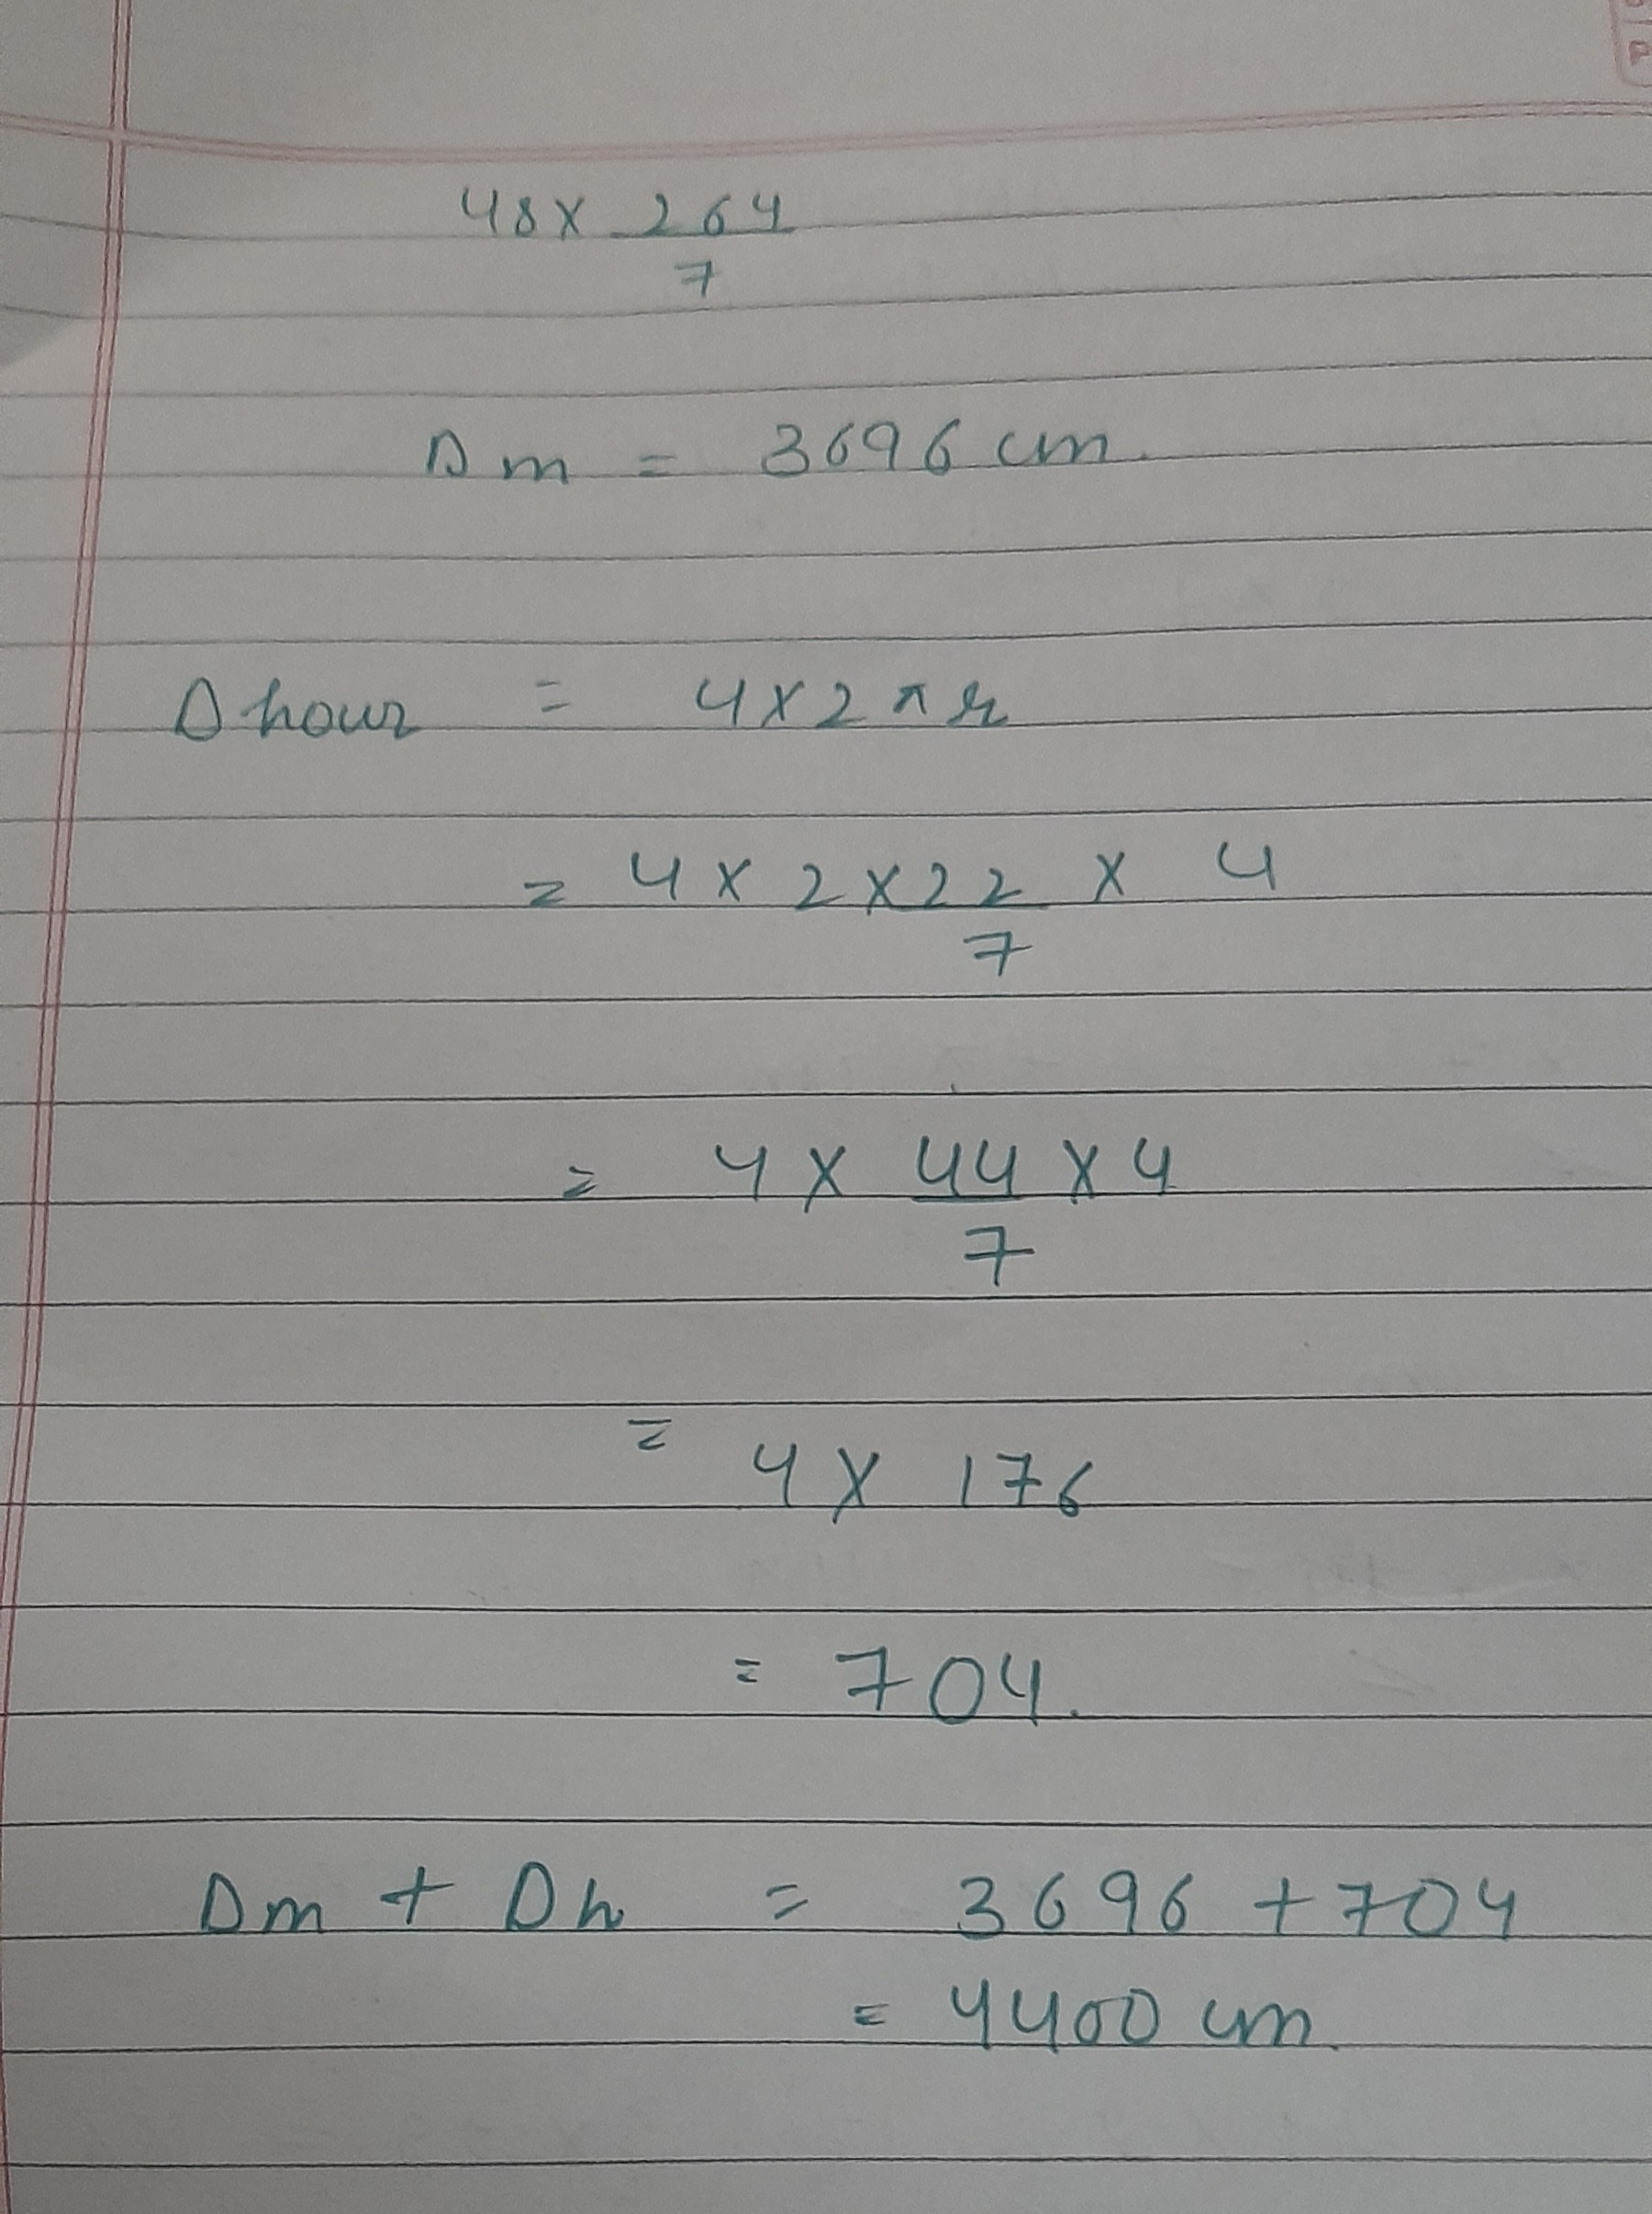 48 x 264
7
Dm = 3696 cm.
D hour = 4 x 2 π r
= 4 x 2 x 22 x 4
7
= 4 x 44 x 4
7
= 4 x 176
= 704.
Dm + Dh = 3696 + 704
= 4400 cm.